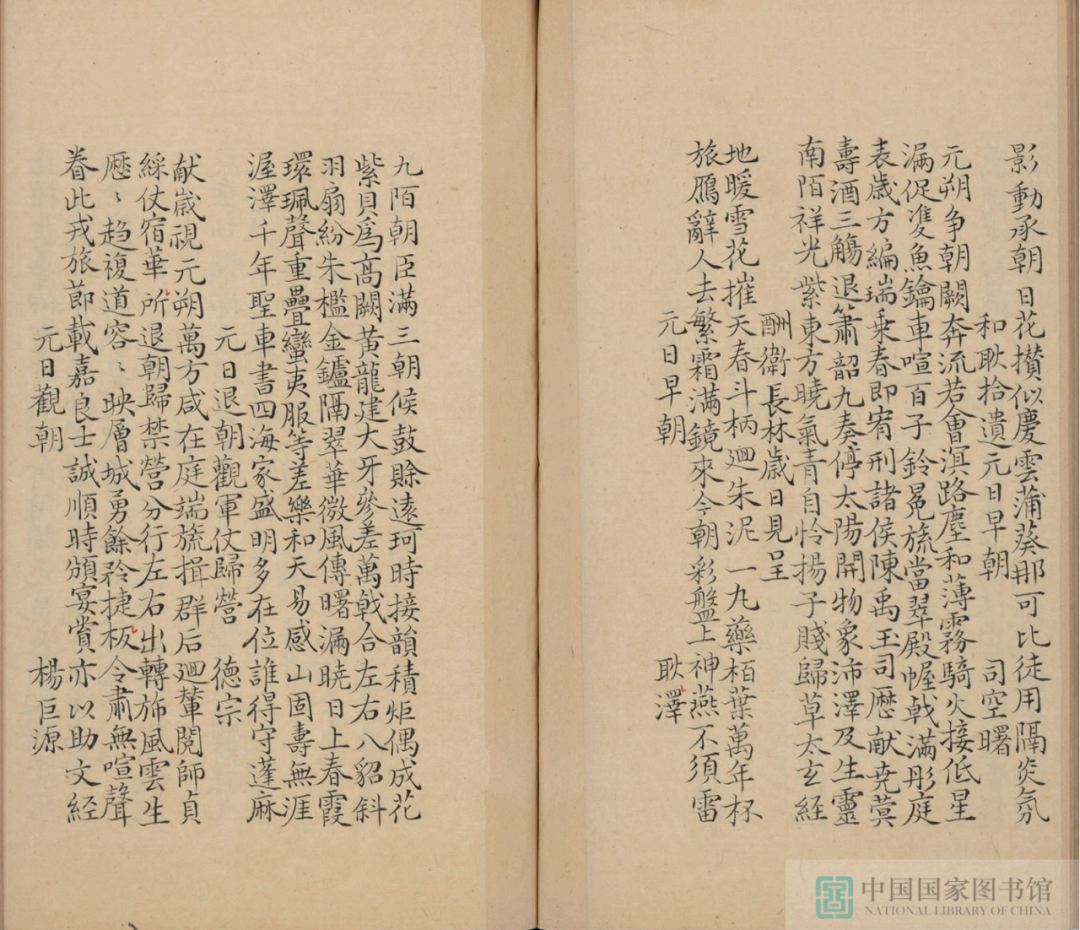 影動承朝日花攅似慶雲蒲葵那可比徒用隔炎氛
和耿拾遺元日早朝 司空曙
元朔争朝闕奔流若會溟路塵和薄霧騎火接低星
漏促䨇魚鑰車喧百子鈴冕旒當翠殿幄戟滿彤庭
表歲方編瑞乗春即宥刑諸侯陳禹玉司厯献尭蓂
壽酒三觴退簫韶九奏停太陽開物象沛澤及生靈
南陌祥光紫東方曉氣青自怜揚子賤歸草太玄經
酬衛長林歲日見呈
地暖雪花摧天春斗柄廻朱泥一九藥栢葉萬年杯
旅鴈辭人去繁霜滿鏡來今朝彩盤上神燕不須雷
元日早朝 耿澤
九陌朝臣滿三朝候鼓賖遠珂時接韻積炬偶成花
紫貝爲高闕黃龍建大牙參差萬戟合左右八貂斜
羽扇紛朱檻金鑪隔翠華微風傳曙漏曉日上春霞
環珮聲重疊蠻夷服等差樂和天易感山固壽無涯
渥澤千年聖車書四海家盛明多在位誰得守蓬麻
元日退朝觀軍仗歸營 德宗
献歲視元朔萬方咸在庭端旒揖群后廻輦閱師貞
綵仗宿華所退朝歸禁營分行左右出轉斾風雲生
厯〻趋複道容〻映層城勇餘矜捷板令肅無喧聲
眷此戎旅節載嘉良士誠順時頒宴賞亦以助文經
元日觀朝 楊巨源
中国国家图书馆
NATIONAL LIBRARY OF CHINA